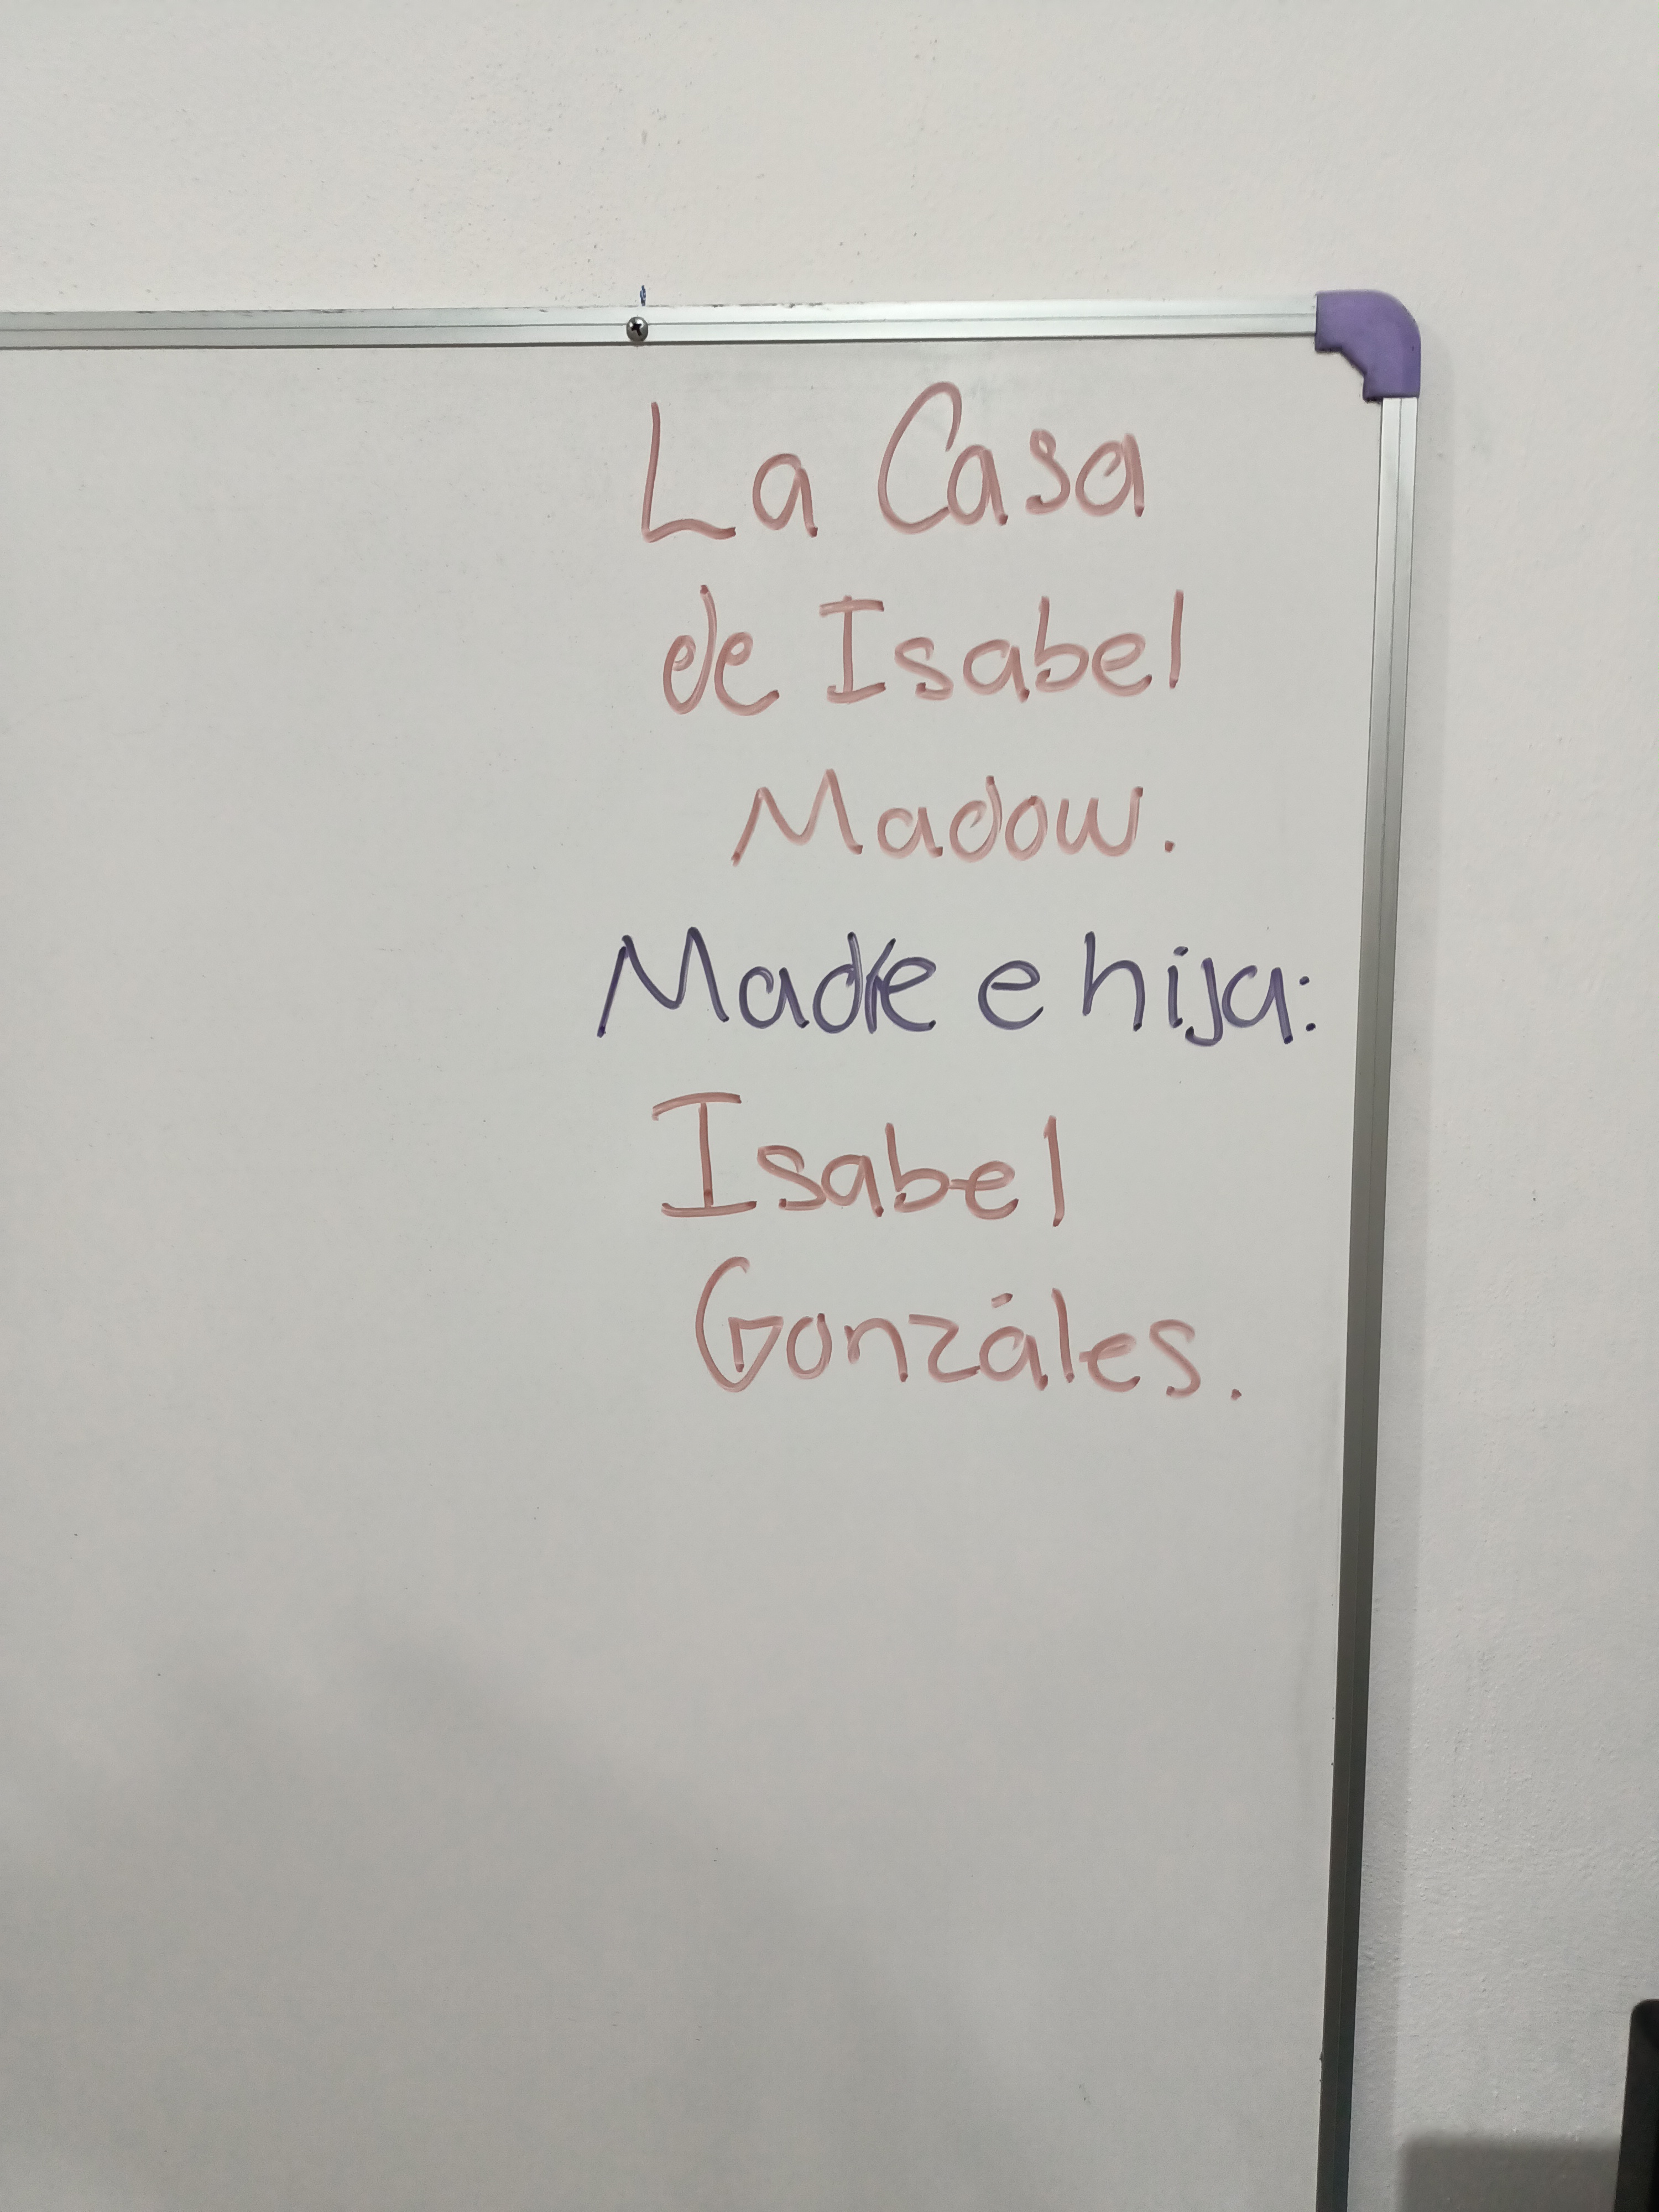 La Casa
de Isabel
Madow.
Madre e hija:
Isabel
Gonzáles.